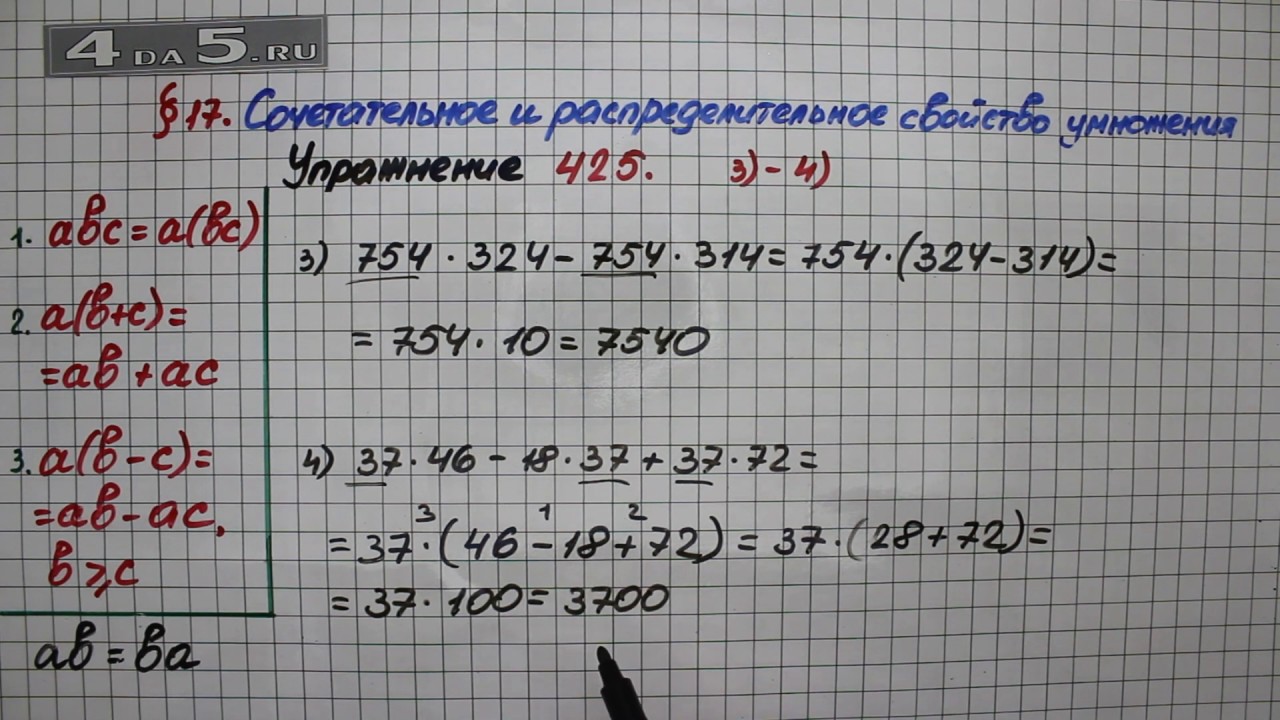 4DA5.RU
§17. Сочетательное и распределительное свойство умножения
Упражнение 425. 3)-4)
1. aвc=a(вc)
2. a(в+c)=
=aв+ac
3. a(в-c)=
=aв-ac,
в⩾c
aв=вa
3) 754·324-754·314=754·(324-314)=
=754·10=7540
4) 37·46-18·37+37·72=
3 1 2
=37·(46-18+72)=37·(28+72)=
=37·100=3700